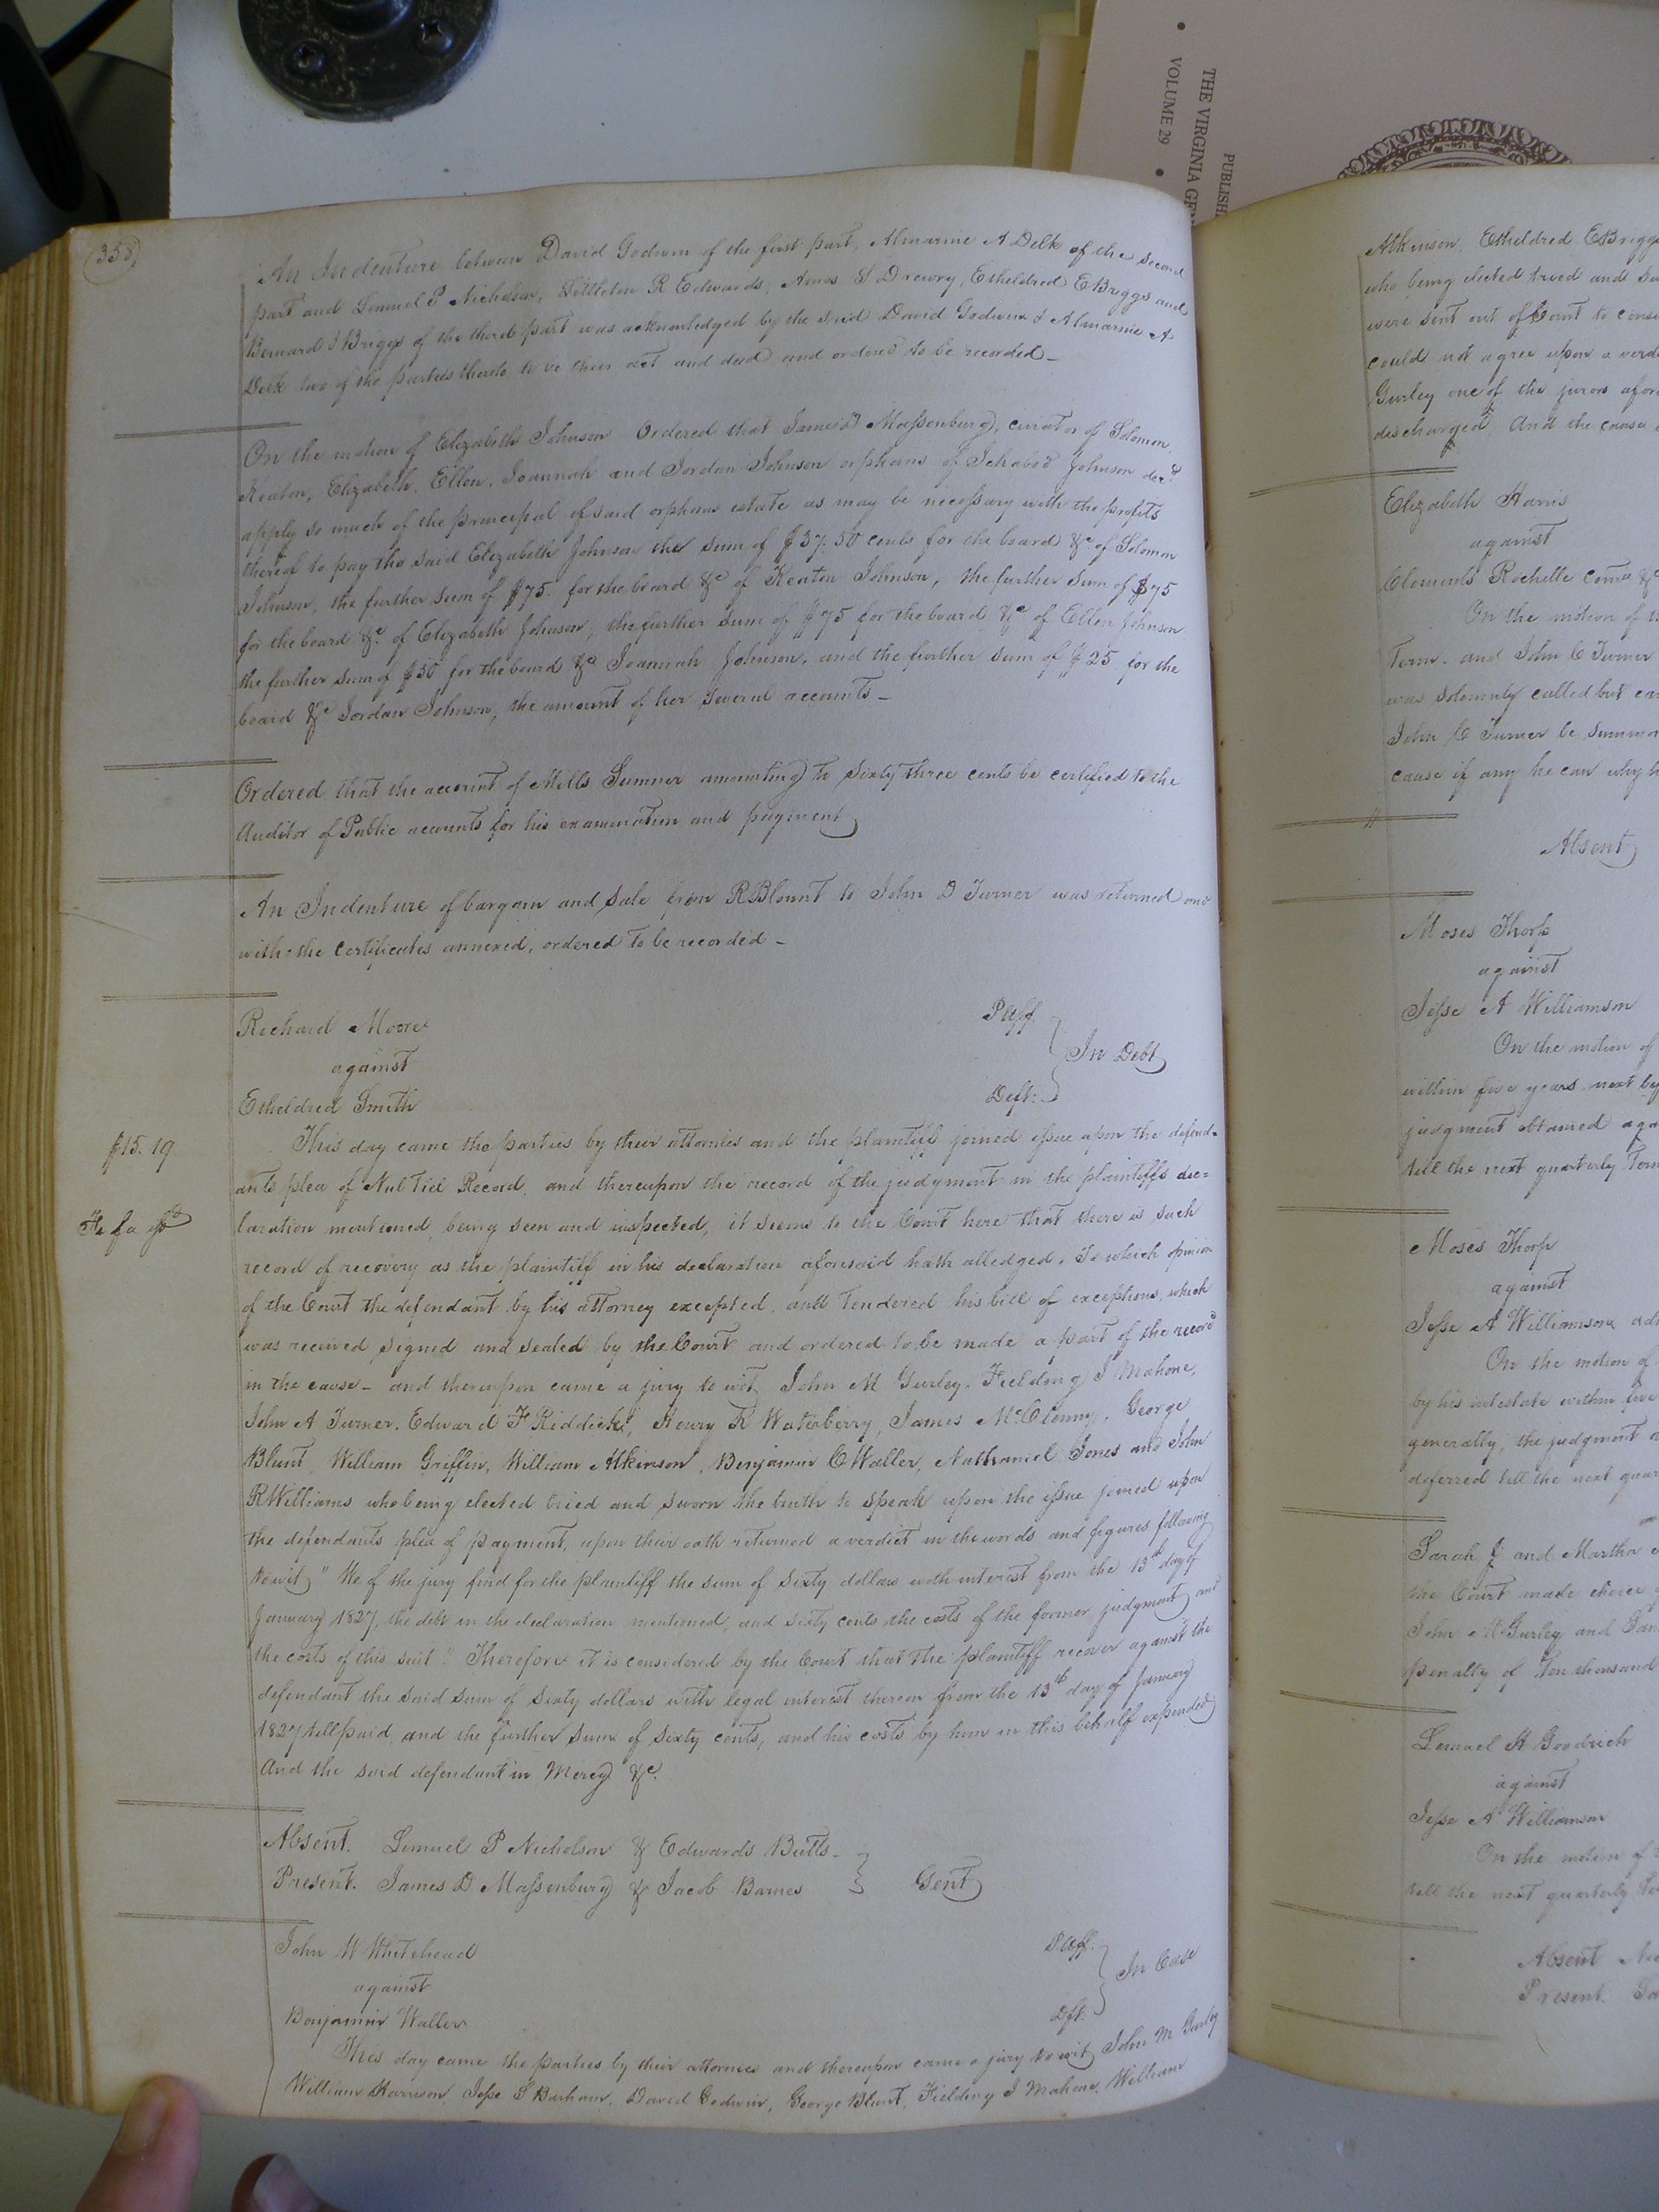 • VOLUME 29 •
THE VIRGINIA GE
PUBLISH
358
An Indenture between David Godwin of the first part, Almarine A Delk of the second
part and Lemuel P Nicholson, Littleton R Edwards, Amos S Drewry, Etheldred E Briggs and
Bernard J Briggs of the third part was acknowledged by the said David Godwin & Almarine A
Delk two of the parties thereto to be their act and deed and ordered to be recorded –
On the motion of Elizabeth Johnson Ordered that James D Massenburg, curator of Solomon,
Keaton, Elizabeth, Ellen, Joannah and Jordan Johnson orphans of Ichabod Johnson decd
apply so much of the principal of said orphans estate as may be necessary with the profits
thereof to pay the said Elizabeth Johnson the sum of $37.50 cents for the board &c of Solomon
Johnson, the further sum of $75. for the board &c of Keaton Johnson, the further sum of $75
for the board &c of Elizabeth Johnson, the further sum of $75 for the board &c of Ellen Johnson
the further sum of $50 for the board &c Joannah Johnson, and the further sum of $25 for the
board &c Jordan Johnson, the amount of her several accounts –
Ordered that the account of Mills Sumner amounting to sixty three cents be certified to the
Auditor of Public accounts for his examination and payment
An Indenture of bargain and sale from R Blount to John D Turner was returned and
with the certificates annexed, ordered to be recorded –
Richard Moore Plff.
against In Debt
Etheldred Smith Deft:
$15.19
This day came the parties by their attornies and the plaintiff joined issue upon the defend-
ants plea of Nul Tiel Record, and thereupon the record of the judgment in the plaintiffs dec=
Fi fa
laration mentioned, being seen and inspected, it seems to the Court here that there is such
record of recovery as the plaintiff in his declaration aforesaid hath alledged. To which opinion
of the Court the defendant by his attorney excepted, and tendered his bill of exceptions, which
was received signed and sealed by the Court and ordered to be made a part of the record
in the cause – and thereupon came a jury to wit, John M Gurley, Fielding J Mahone,
John A Turner, Edward F Riddick, Henry K Waterberry, James McClenny, George
Blunt, William Griffin, William Atkinson, Benjamin C Waller, Nathaniel Jones and John
R Williams who being elected tried and sworn the truth to speak upon the issue joined upon
the defendants plea of payment, upon their oath returned a verdict in the words and figures following
towit, "We of the jury find for the plaintiff the sum of sixty dollars with interest from the 13th day of
January 1827, the debt in the declaration mentioned, and sixty cents the costs of the former judgment, and
the costs of this suit". Therefore it is considered by the Court that the plaintiff recover against the
defendant the said sum of sixty dollars with legal interest thereon from the 13th day of January
1827 till paid, and the further sum of sixty cents, and his costs by him in this behalf expended
And the said defendant in Mercy &c.
Absent. Lemuel P Nicholson & Edwards Butts –
Present. James D Massenburg & Jacob Barnes Gent
John W Whitehead Plff.
against In Case
Benjamin Waller Dft:
This day came the parties by their attornies and thereupon came a jury to wit, John M Gurley
William Harrison, Jesse S Barham, David Godwin, George Blunt, Fielding J Mahone, William
Atkinson, Etheldred E Briggs
who being elected tried and
were sent out of Court to
could not agree upon a
Gurley one of the jurors
discharged. And the cause
Elizabeth Harris
against
Clements Rochelle
On the motion of
Term. and John C Turner
was solemnly called but
John C Turner be
cause if any he can why
Absent
Moses Thorp
against
Jesse A Williamson
On the motion of
within five years next
judgment obtained
till the next quarterly Term
Moses Thorp
against
Jesse A Williamson
On the motion of
by his intestate within five
generally, the judgment
deferred till the next
Sarah J and Martha
the Court made choice
John M Gurley and
penalty of Ten thousand
Lemuel H Goodrich
against
Jesse A Williamson
On the motion of
till the next quarterly
Absent
Present.